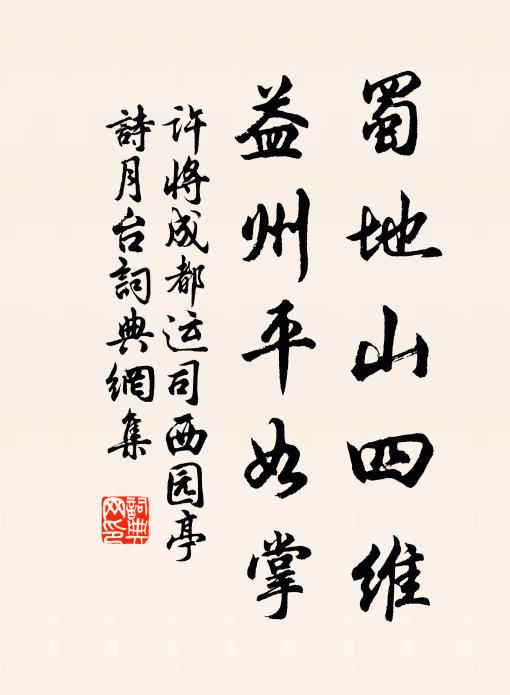 蜀地山四維
益州平如掌
许將成都运司西园亭
詩月台詞典網集
詞典
网印